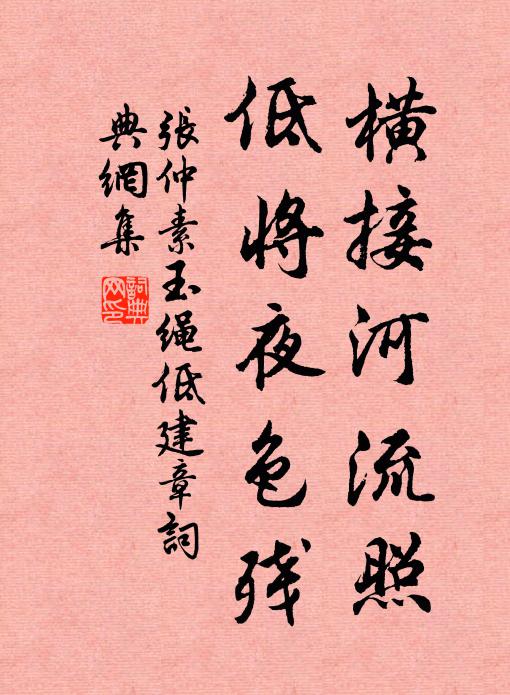 横接河流照
低将夜色残
張仲素玉绳低建章詞
典網集
詞典網印